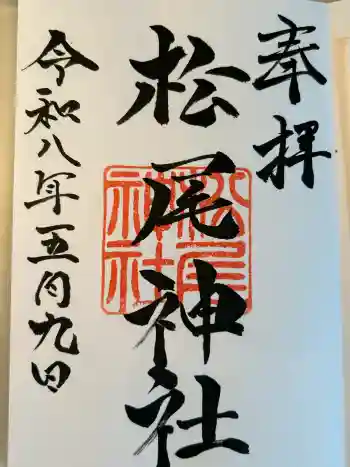 奉拝
松尾神社
松尾神社
令和八年五月九日